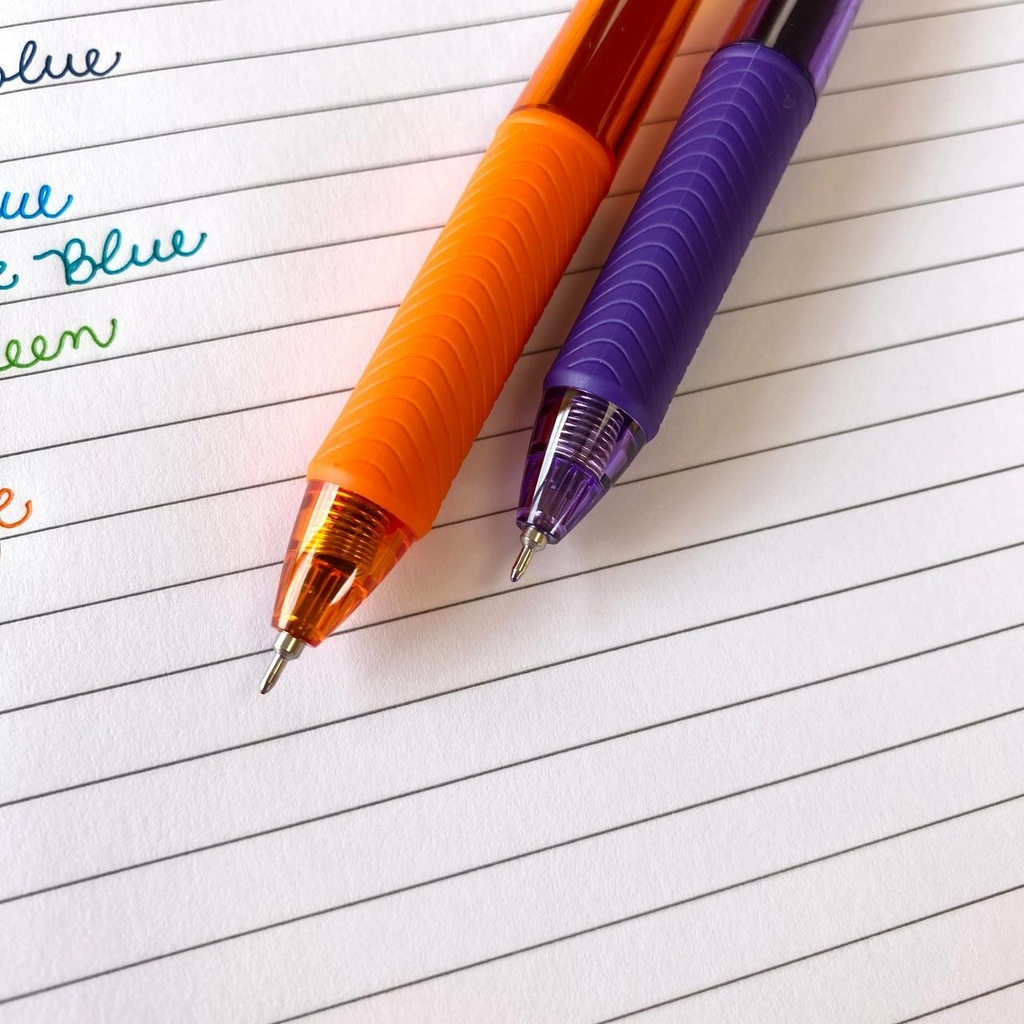 blue
ue
e Blue
een
e